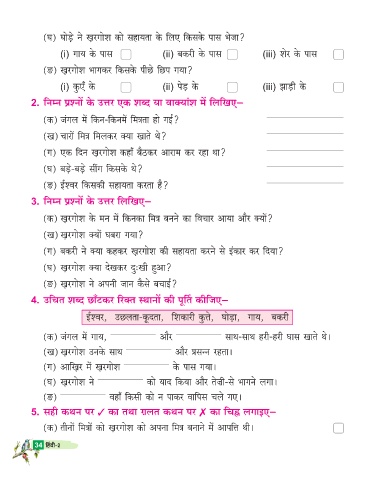 (घ) घोड़े ने ख़रगोश को सहायता के लिए किसके पास भेजा?
(i) गाय के पास (ii) बकरी के पास (iii) शेर के पास
(ङ) ख़रगोश भागकर किसके पीछे छिप गया?
(i) कुएँ के (ii) पेड़ के (iii) झाड़ी के
2. निम्न प्रश्नों के उत्तर एक शब्द या वाक्यांश में लिखिए–
(क) जंगल में किन-किनमें मित्रता हो गई?
(ख) चारों मित्र मिलकर क्या खाते थे?
(ग) एक दिन ख़रगोश कहाँ बैठकर आराम कर रहा था?
(घ) बड़े-बड़े सींग किसके थे?
(ङ) ईश्वर किसकी सहायता करता है?
3. निम्न प्रश्नों के उत्तर लिखिए–
(क) ख़रगोश के मन में किनका मित्र बनने का विचार आया और क्यों?
(ख) ख़रगोश क्यों घबरा गया?
(ग) बकरी ने क्या कहकर ख़रगोश की सहायता करने से इंकार कर दिया?
(घ) ख़रगोश क्या देखकर दुःखी हुआ?
(ङ) ख़रगोश ने अपनी जान कैसे बचाई?
4. उचित शब्द छाँटकर रिक्त स्थानों की पूर्ति कीजिए–
ईश्वर, उछलता-कूदता, शिकारी कुत्ते, घोड़ा, गाय, बकरी
(क) जंगल में गाय, और साथ-साथ हरी-हरी घास खाते थे।
(ख) ख़रगोश उनके साथ और प्रसन्न रहता।
(ग) आखिर में ख़रगोश के पास गया।
(घ) ख़रगोश ने को याद किया और तेजी-से भागने लगा।
(ङ) वहाँ किसी को न पाकर वापिस चले गए।
5. सही कथन पर ✓ का तथा ग़लत कथन पर ✗ का चिह्न लगाइए–
(क) तीनों मित्रों को ख़रगोश को अपना मित्र बनाने में आपत्ति थी।
34 हिंदी-3